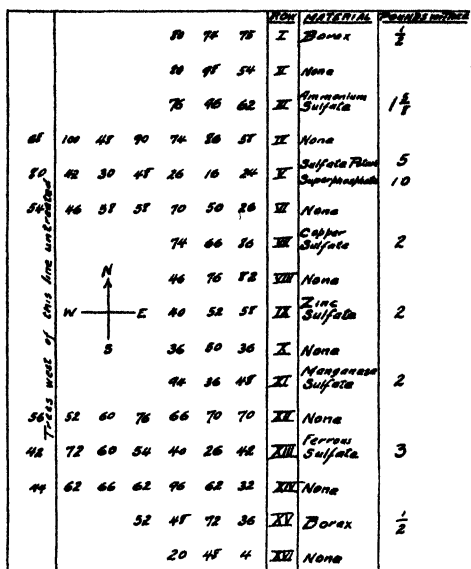 ROW MATERIAL POUNDS PER TREE
80 74 78 I Borax 1/2
80 98 54 II None
76 96 62 III Ammonium Sulfate 1 5/8
68 100 48 90 74 86 58 IV None
80 42 30 48 26 16 24 V Sulfate Potash 5
Superphosphate 10
54 46 38 58 70 50 26 VI None
74 66 86 VII Copper Sulfate 2
46 76 82 VIII None
40 52 58 IX Zinc Sulfate 2
36 80 36 X None
94 36 48 XI Manganese Sulfate 2
56 52 60 76 66 70 70 XII None
42 72 60 54 40 26 42 XIII Ferrous Sulfate 3
44 62 66 62 96 62 32 XIV None
52 48 72 36 XV Borax 1/2
20 48 4 XVI None
Trees west of this line untreated
N
W E
S